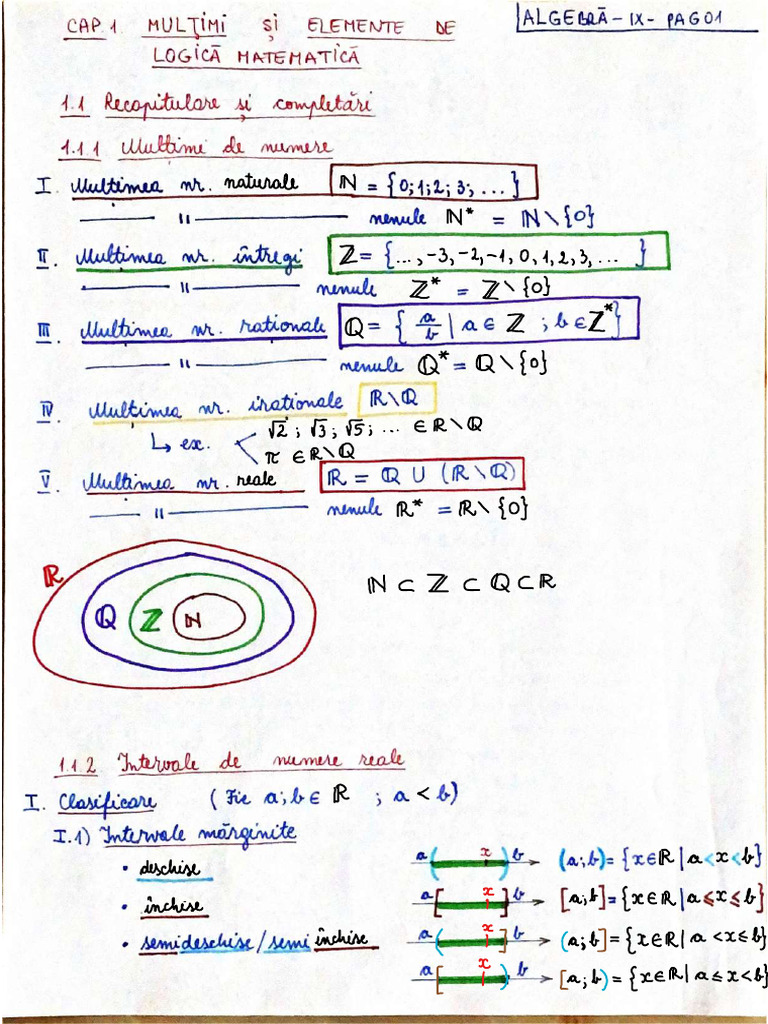 ALGEBRĂ - IX - PAG 01
CAP. 1. MULȚIMI ȘI ELEMENTE DE
LOGICĂ MATEMATICĂ
1.1 Recapitulare și completări
1.1.1 Mulțimi de numere
I. Mulțimea nr. naturale ℕ = {0; 1; 2; 3; ...}
—— 〃 —— nenule ℕ* = ℕ \ {0}
II. Mulțimea nr. întregi ℤ = {..., -3, -2, -1, 0, 1, 2, 3, ... }
—— 〃 —— nenule ℤ* = ℤ \ {0}
III. Mulțimea nr. raționale ℚ = { a/b | a ∈ ℤ ; b ∈ ℤ* }
—— 〃 —— nenule ℚ* = ℚ \ {0}
IV. Mulțimea nr. iraționale ℝ \ ℚ
↳ ex. √2 ; √3 ; √5 ; ... ∈ ℝ \ ℚ
π ∈ ℝ \ ℚ
V. Mulțimea nr. reale ℝ = ℚ ∪ (ℝ \ ℚ)
—— 〃 —— nenule ℝ* = ℝ \ {0}
ℝ ℚ ℤ ℕ
ℕ ⊂ ℤ ⊂ ℚ ⊂ ℝ
1.1.2 Intervale de numere reale
I. Clasificare (Fie a; b ∈ ℝ ; a < b)
I.1) Intervale mărginite
• deschise a ( x ) b (a; b) = {x ∈ ℝ | a < x < b}
• închise a [ x ] b [a; b] = {x ∈ ℝ | a ⩽ x ⩽ b}
• semideschise / semiînchise a ( x ] b (a; b] = {x ∈ ℝ | a < x ≤ b}
a [ x ) b [a; b) = {x ∈ ℝ | a ≤ x < b}